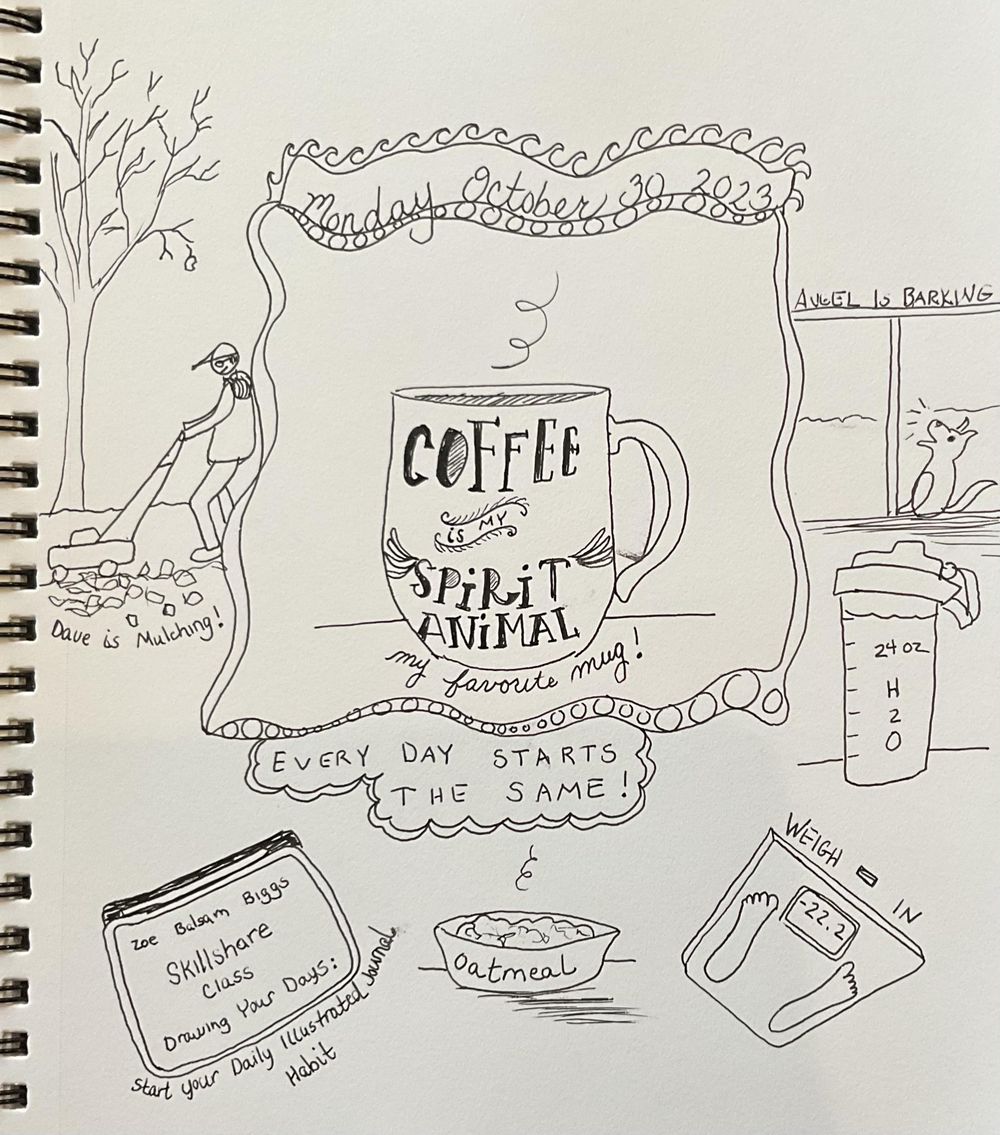 Monday October 30 2023
ANGEL IS BARKING
COFFEE
is MY
SPiRiT
ANiMAL
my favorite mug!
Dave is Mulching!
24 oz
H
2
O
EVERY DAY STARTS
THE SAME!
Zoe Balsam Biggs
Skillshare
Class
Drawing Your Days:
Start your Daily Illustrated Journal
Habit
Oatmeal
WEIGH - IN
-22.2